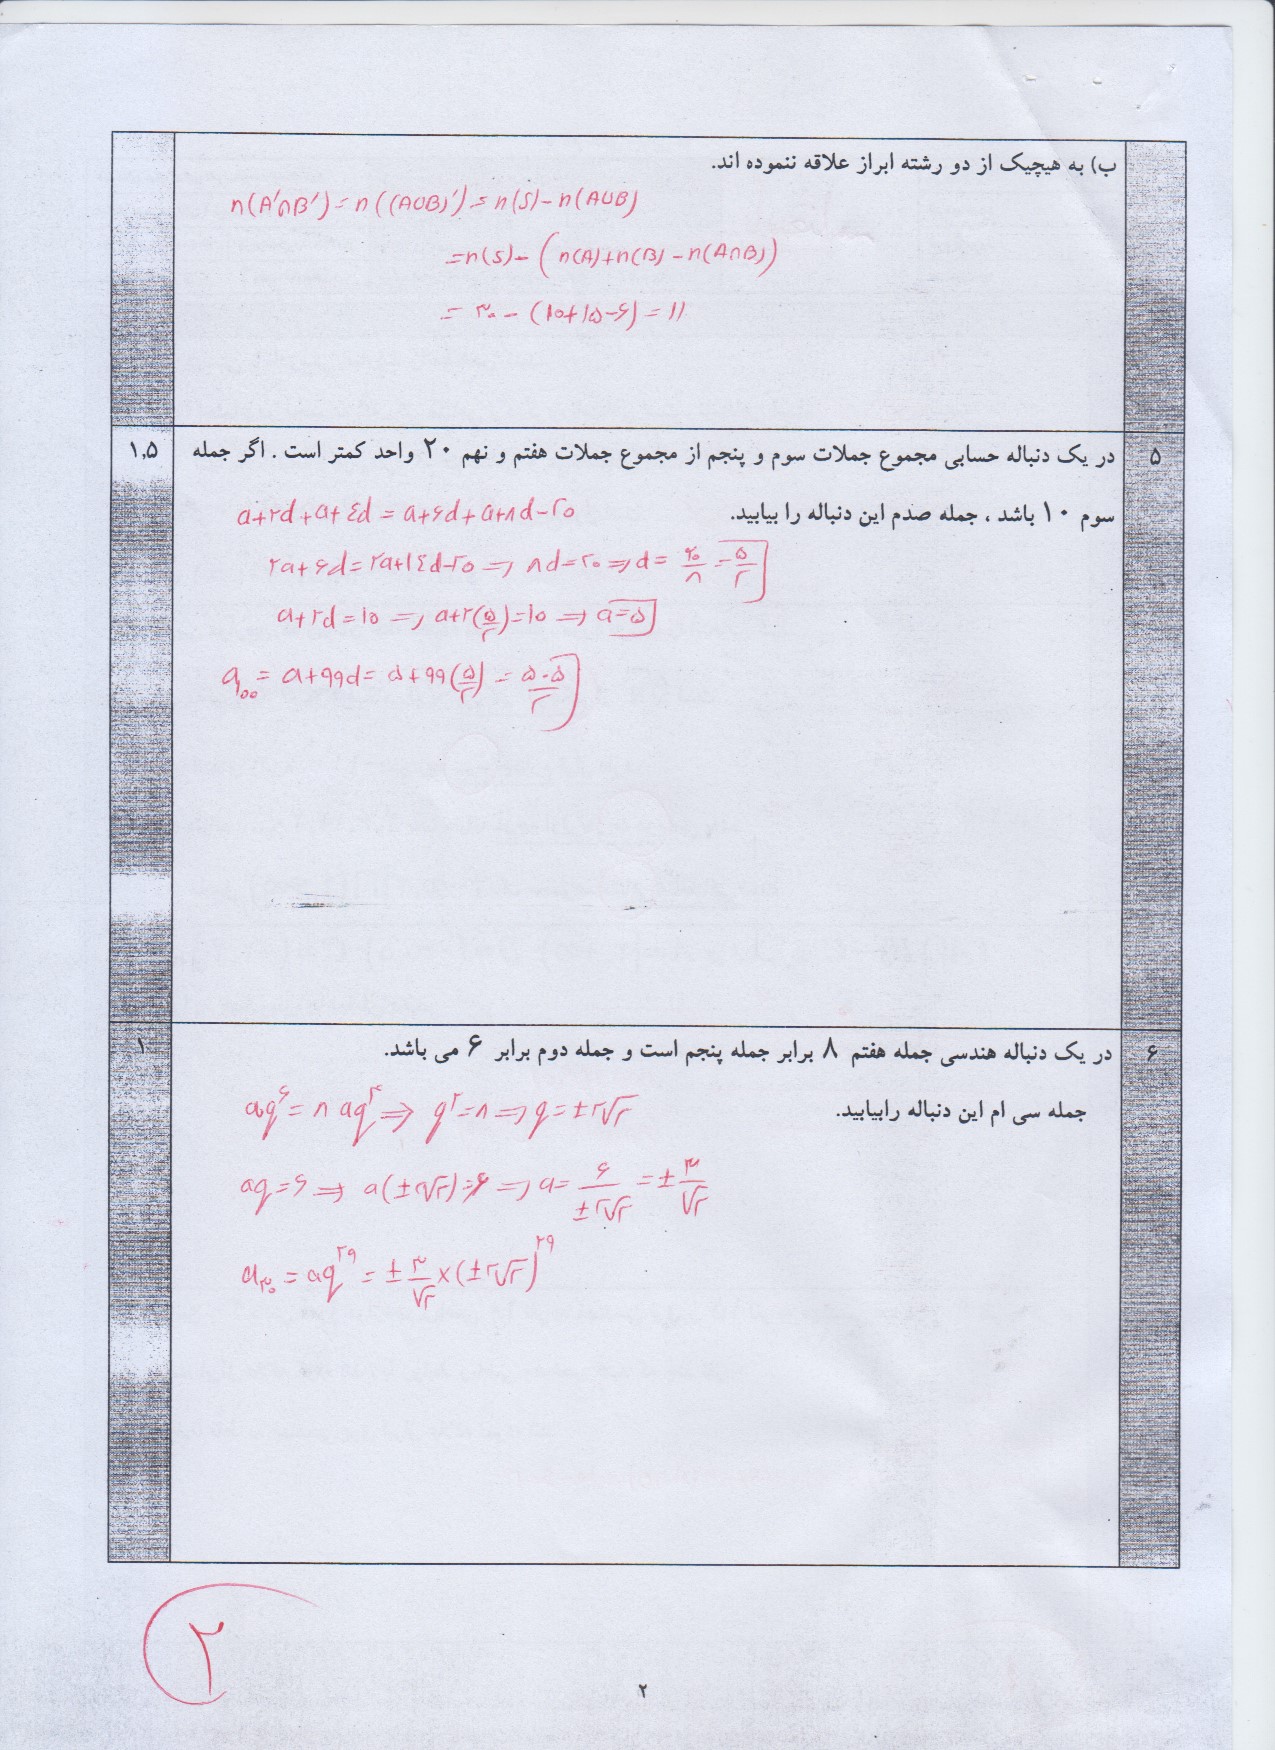 ب) به هیچیک از دو رشته ابراز علاقه ننموده اند.
n(A'∩B') = n((A∪B)') = n(S) - n(A∪B)
= n(S) - (n(A) + n(B) - n(A∩B))
= ۳۰ - (۱۰+۱۵-۶) = ۱۱
۵ در یک دنباله حسابی مجموع جملات سوم و پنجم از مجموع جملات هفتم و نهم ۲۰ واحد کمتر است . اگر جمله ۱,۵
سوم ۱۰ باشد ، جمله صدم این دنباله را بیابید.
a+۲d+a+۴d = a+۶d+a+۸d-۲۰
۲a+۶d=۲a+۱۴d-۲۰ ⇒ ۸d=۲۰ ⇒ d= ۲۰/۸ = ۵/۲
a+۲d=۱۰ ⇒ a+۲(۵/۲)=۱۰ ⇒ a=۵
a۱۰۰ = a+۹۹d = ۵+۹۹(۵/۲) = ۵۰۵/۲
۶ در یک دنباله هندسی جمله هفتم ۸ برابر جمله پنجم است و جمله دوم برابر ۶ می باشد. ۱
جمله سی ام این دنباله رابیابید.
aq^۶ = ۸ aq^۴ ⇒ q^۲=۸ ⇒ q=±۲√۲
aq=۶ ⇒ a(±۲√۲)=۶ ⇒ a= ۶/±۲√۲ = ±۳/√۲
a۳۰ = aq^۲۹ = ±۳/√۲ × (±۲√۲)^۲۹
۲
۲